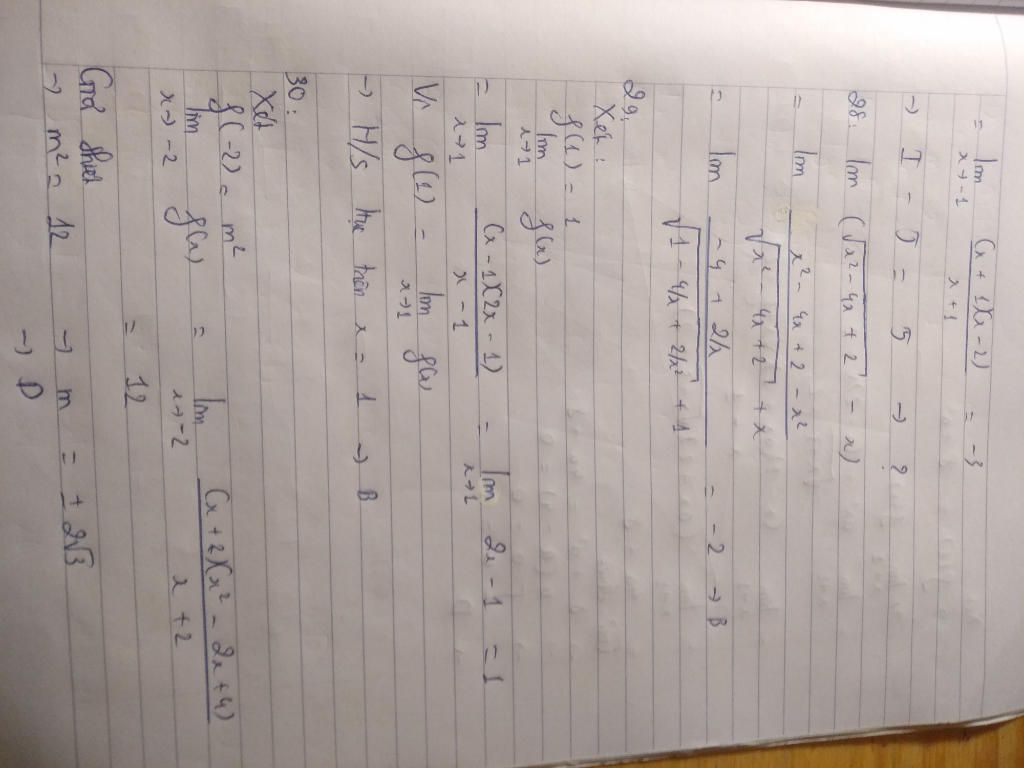 = lim x→-1 (x+1)(x-2) / x+1 = -3
→ I - J = 5 → ?
28: lim (√x²-4x+2 - x)
= lim x²-4x+2-x² / √x²-4x+2 + x
= lim -4+2/x / √1-4/x+2/x² + 1 = -2 → B
29:
Xét:
f(1) = 1
lim x→1 f(x)
= lim x→1 (x-1)(2x-1) / x-1 = lim x→1 2x-1 = 1
Vì f(1) = lim x→1 f(x)
→ H/s liên tục x = 1 → B
30:
Xét
f(-2) = m²
lim x→-2 f(x) = lim x→-2 (x+2)(x²-2x+4) / x+2
= 12
Giả thiết
→ m² = 12 → m = ±2√3
→ D